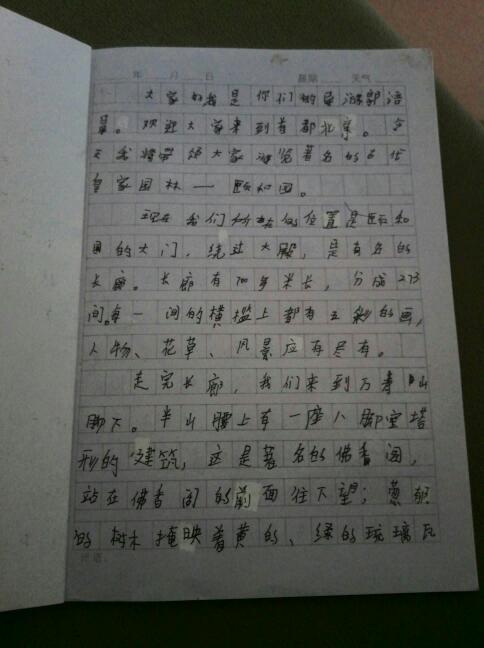 年 月 日 星期 天气
大家好我是你们的导游郭语
。欢迎大家来到首都北京。今
天我将带领大家游览著名的古代
皇家园林一颐和园。
现在我们所站的位置是颐和
园的大门,绕过大殿,是有名的
长廊。长廊有700多米长,分成273
间。每一间的横槛上都有五彩的画,
人物、花草、风景应有尽有。
走完长廊,我们来到万寿山
脚下。半山腰上有一座八脚宝塔
形的建筑,这是著名的佛香阁,
站在佛香阁的前面往下望;葱郁
的树木掩映着黄的、绿的琉璃瓦
评语: